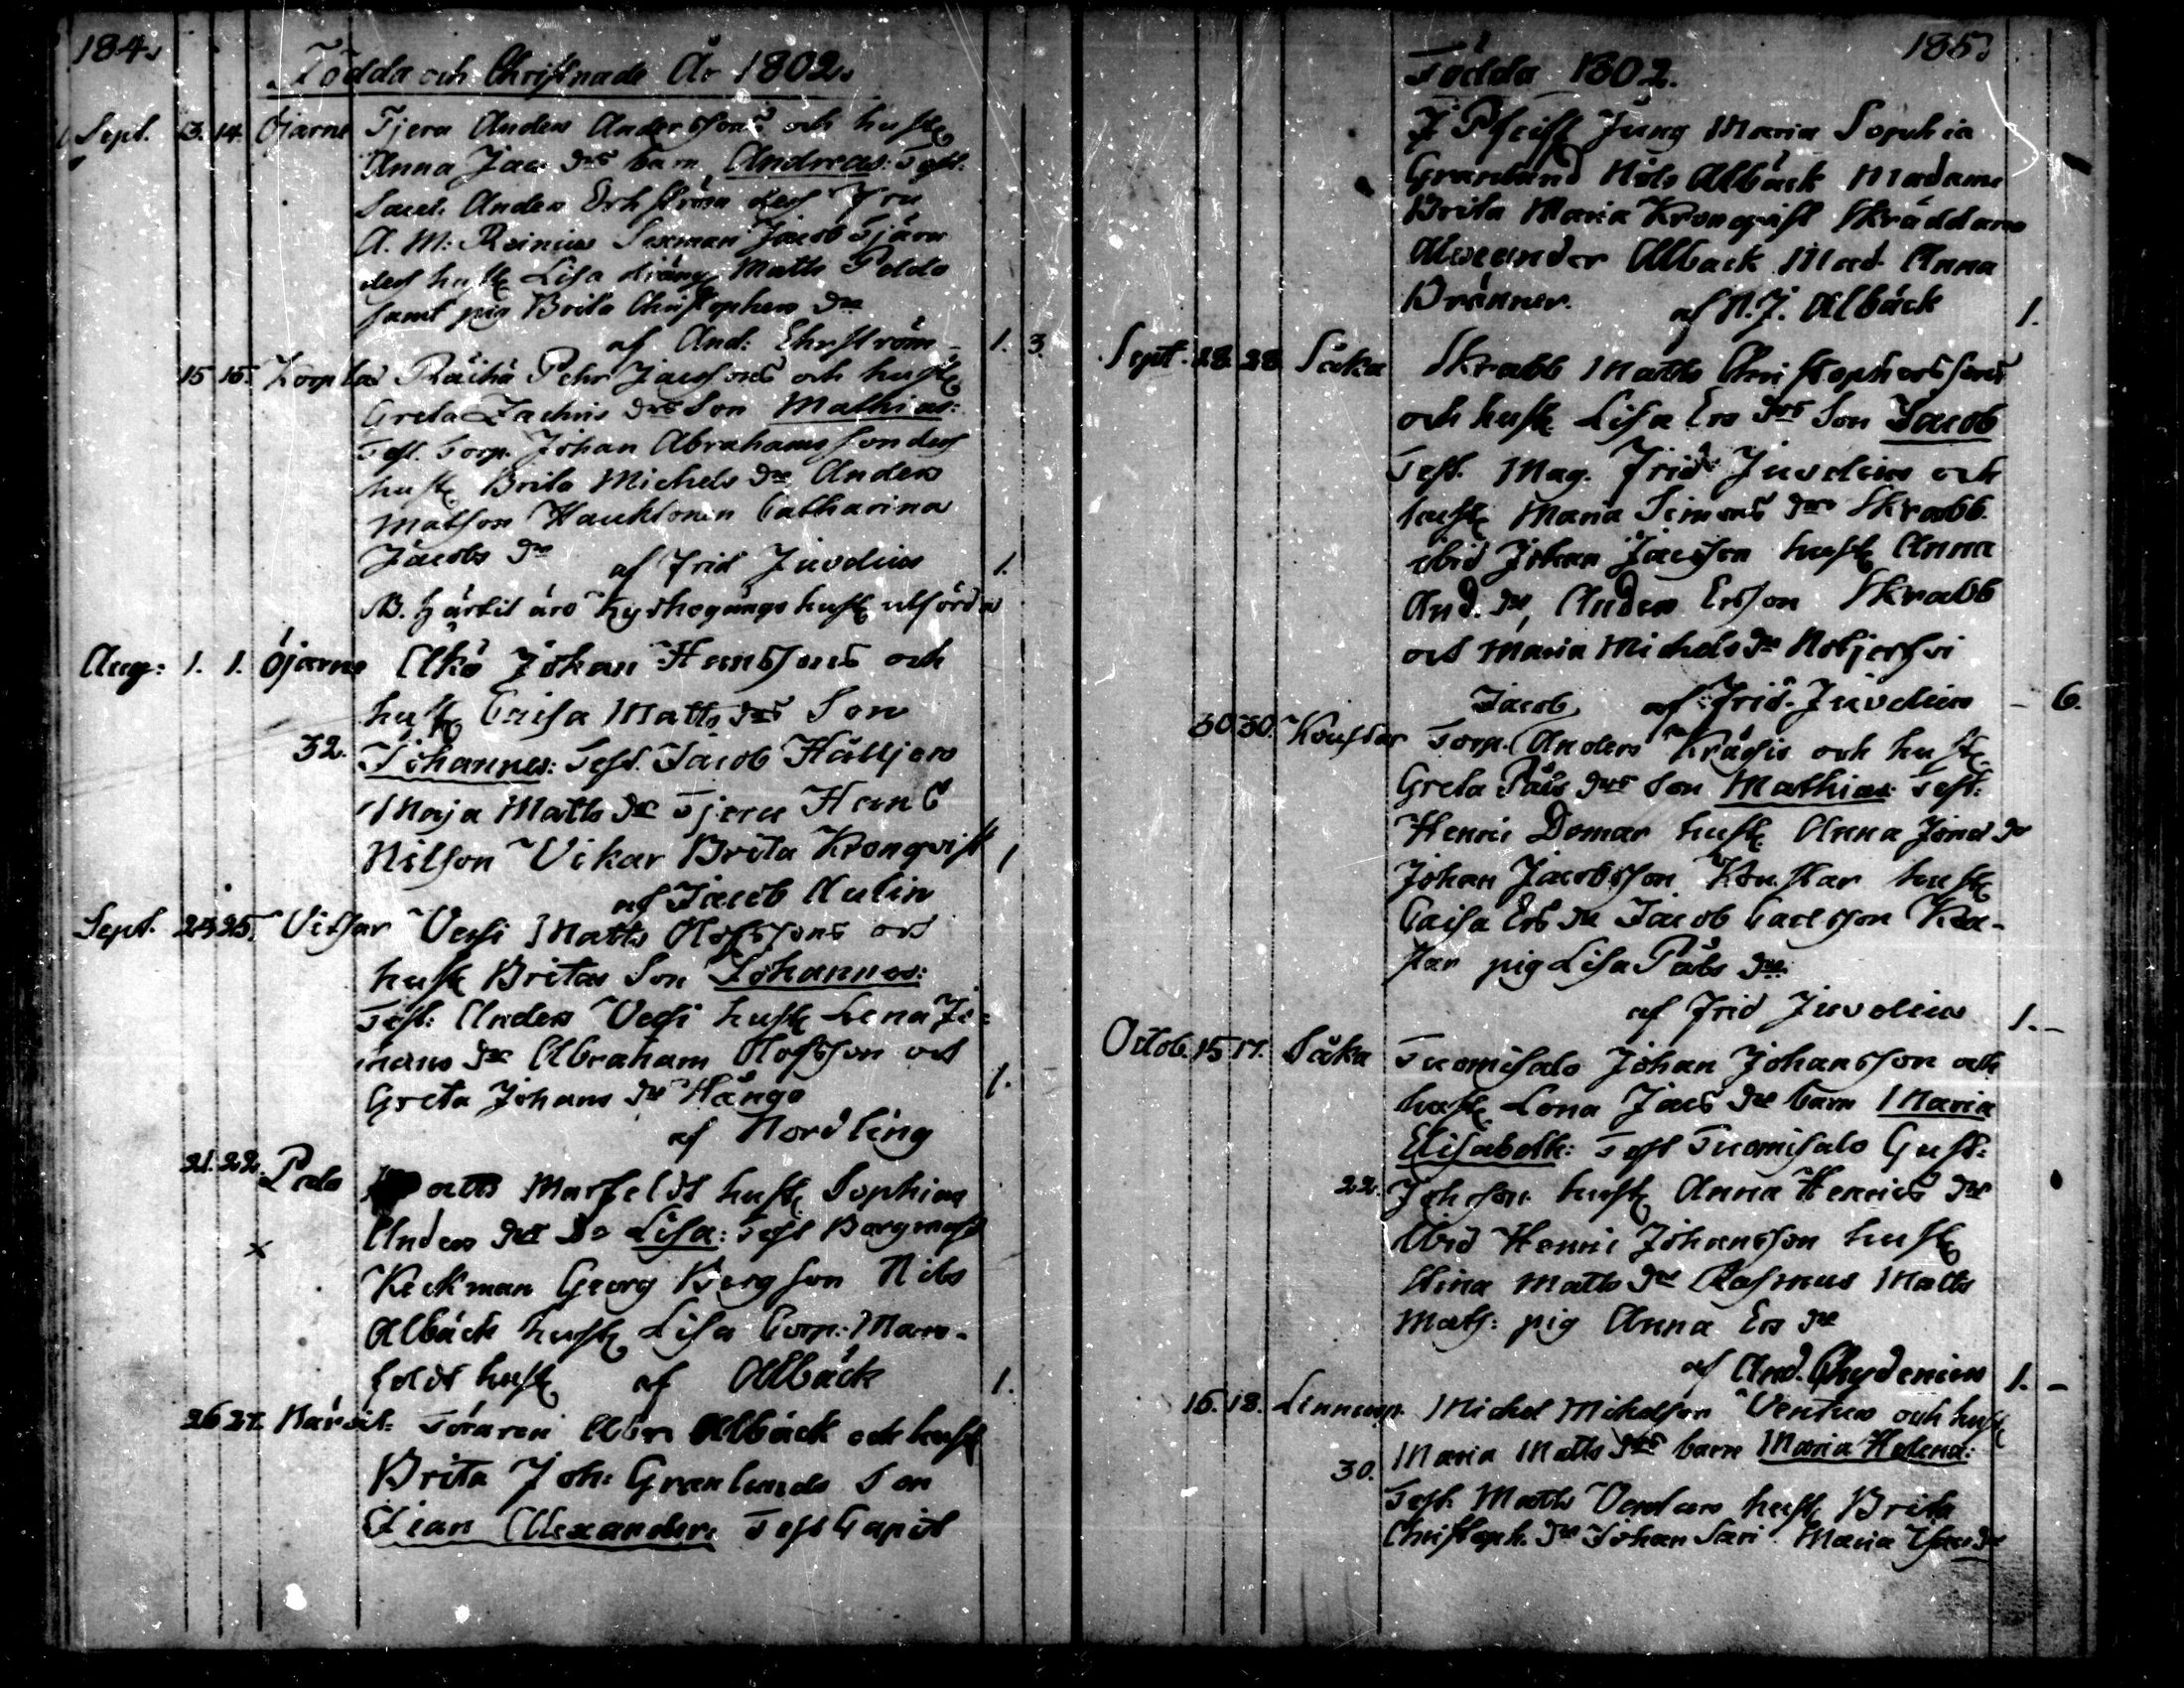 184.
Födda och Christnade År 1802.
Sept. 13. 14. Öjarne Tjera Anders Anderssons och hustr
Anna Jac: drs barn Andreas: Test.
Sacel. Anders Erhström dess Fru
A. M: Reinius Sexman Jacob Tjära
dess hustr Lisa dräng Matts Peldo
samt pig Brita Christophers dr
af And: Ehrström 1. 3.
15 15. Korplax Räihä Pehr Jacssons och hustr
Greta Zachris drs Son Mathias:
Test. Torp. Johan Abrahamsson dess
hustr Brita Michels dr Anders
Matson Haukkonen Catharina
Jacobs dr af Frid Juvelius 1.
NB. härtil äro Kyrkogångs hustr utförda
Aug: 1. 1. Öjarne Alkö Johan Hanssons och
hustr Caisa Matts drs Son
32. Johannes: Test. Jacob Källjers
Maja Matts dr Tjera Henric
Nilson Vikar Brita Kronqvist 1
af Jacob Aulin
Sept. 24 25. Vitsar Vessi Matts Olofssons och
hustr Britas Son Johannes:
Test: Anders Vessi hustr Lena Jo-
hans dr Abraham Olofsson och
Greta Johans dr Hångo 1.
af Nordling
21. 22. Pedo Matts Marfeldt hustr Sophias
Anders drs Dr Lisa: Test Borgmäst
x
Keckman Georg Bergson Nils
Albäck hustr Lisa Corp: Mar-
feldt hustr af Albäck 1.
26 27. Närvil: Färaren Abr: Albäck och hustr
Brita Joh: Granlunds Son
Alexander: Test Capit
185
Födda 1802.
J Pfeiff Jung Maria Sophia
Granlund Nils Albäck Madame
Brita Maria Kronqvist Skräddare
Alexander Albäck Mad. Anna
Bränner. af N. J. Albäck 1.
Sept. 28. 28 Såka Skrabb Matts Christopherssons
och hustr Lisa Ers drs Son Jacob
Test. Mag. Frid: Juvelius och
hustr Maria Simons dr Skrabb
ibid Johan Jacsson hustr Anna
And. dr, Anders Ersson Skrabb
och Maria Michels dr
Jacob af Frid. Juvelius – 6.
30. 30. Koustar Torp. Anders Krägis och hustr
Greta Påls drs Son Mathias Test:
Henric Domar hustr Anna Jöns dr
Johan Jacobsson Koustar hustr
Caisa Ers dr Jacob Carlsson Kou-
star pig Lisa Påls dr.
af Frid Juvelius 1. –
Octob. 15 17. Såka Tuomisalo Johan Johansson och
hustr Lena Jacs drs barn Maria
Elisabeth: Test Tuomisalo Gust:
22. Johsson hustr Anna Henrics dr
ibid Henric Johansson hustr
Stina Matts dr Rasmus Matts
Mats: pig Anna Ers dr
af And. Chydenius 1. –
16. 18. Linnusp. Michel Mickelson Ventus och hustr
30. Maria Matts drs barn Maria Helena:
Test. Matts Ventus hustr Brita
Christoph. dr Johan Sari Maria Isac dr